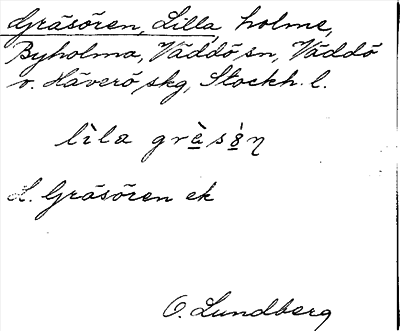 Gräsören, Lilla, holme,
Byholma, Väddö sn, Väddö
o. Häverö skg, Stockh. l.
lìla grὰ̱sò̱̈ŋ
L. Gräsören ek
O. Lundberg